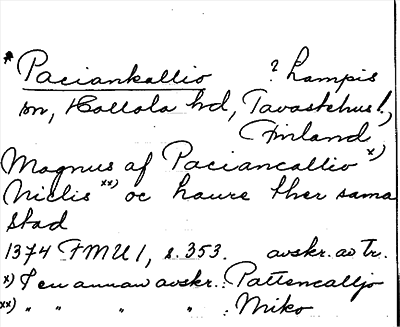 * Paciankallio ? Lampis
sn, Hollola hd, Tavastehus l.,
(Finland)
Magnus af Paciancallio x)
Niclis xx) oc haure ther sama
stad
1374 FMU 1, s. 353. avskr. av tr.
x) I en annan avskr.: Pattencalljo
xx) " " " " : Miko